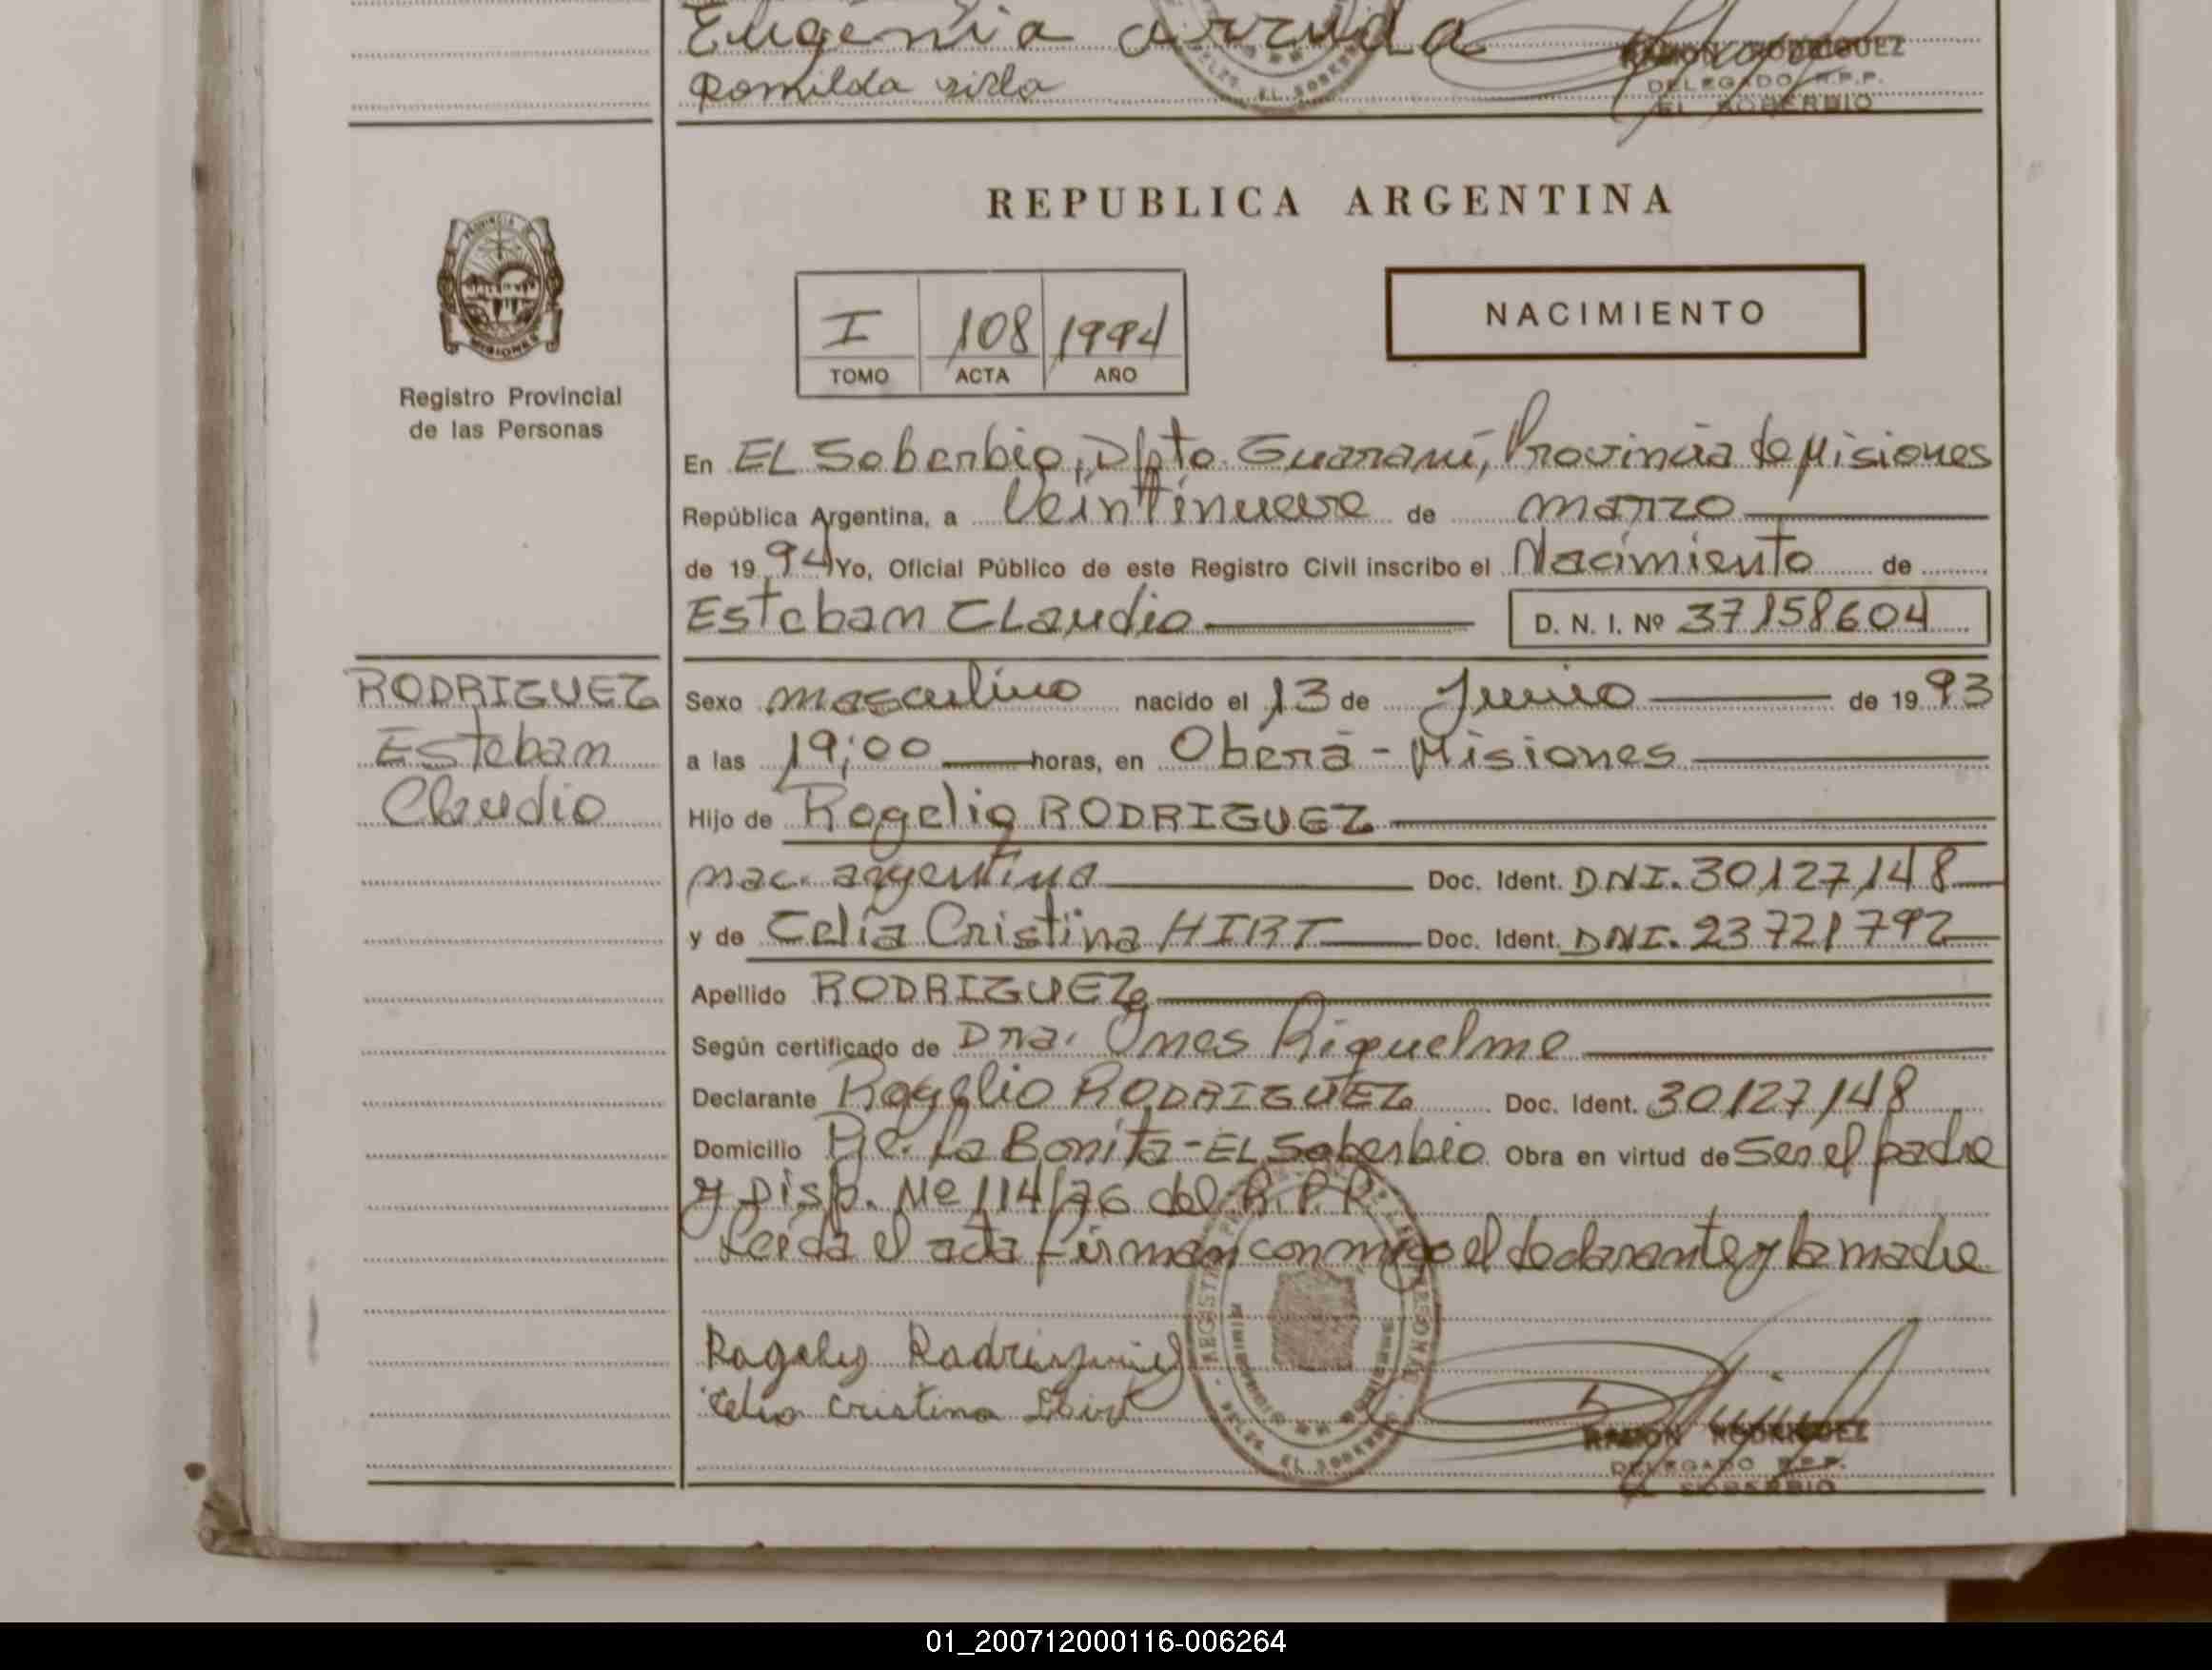 Eugenia Arruda
Romilda
RAMON RODRIGUEZ
DELEGADO R.P.P.
EL SOBERBIO
REPUBLICA ARGENTINA
PROVINCIA DE
MISIONES
Registro Provincial
de las Personas
I 108 1994
TOMO ACTA AÑO
NACIMIENTO
En EL Soberbio, Dpto. Guaraní, Provincia de Misiones
República Argentina, a Veintinueve de marzo
de 1994 Yo, Oficial Público de este Registro Civil inscribo el Nacimiento de
Esteban CLaudio D. N. I. Nº 37158604
RODRIGUEZ
Esteban
Claudio
Sexo masculino nacido el 13 de Junio de 1993
a las 19;00 horas, en Oberá - Misiones
Hijo de Rogelio RODRIGUEZ
nac. argentina Doc. Ident. DNI. 30127148
y de Celia Cristina HIRT Doc. Ident. DNI. 23721792
Apellido RODRIGUEZ
Según certificado de Dra. Ines Riquelme
Declarante Rogelio RODRIGUEZ Doc. Ident. 30127148
Domicilio Pje. La Bonita - EL Soberbio Obra en virtud de Ser el padre
y Disp. Nº 114/76 del R.P.P.
Leida el acta firman conmigo el declarante y la madre
Celia Cristina Hirt
RAMON RODRIGUEZ
DELEGADO R.P.P.
EL SOBERBIO
01_200712000116-006264